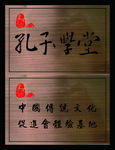 孔子學堂
中國傳統文化
促進會體驗基地